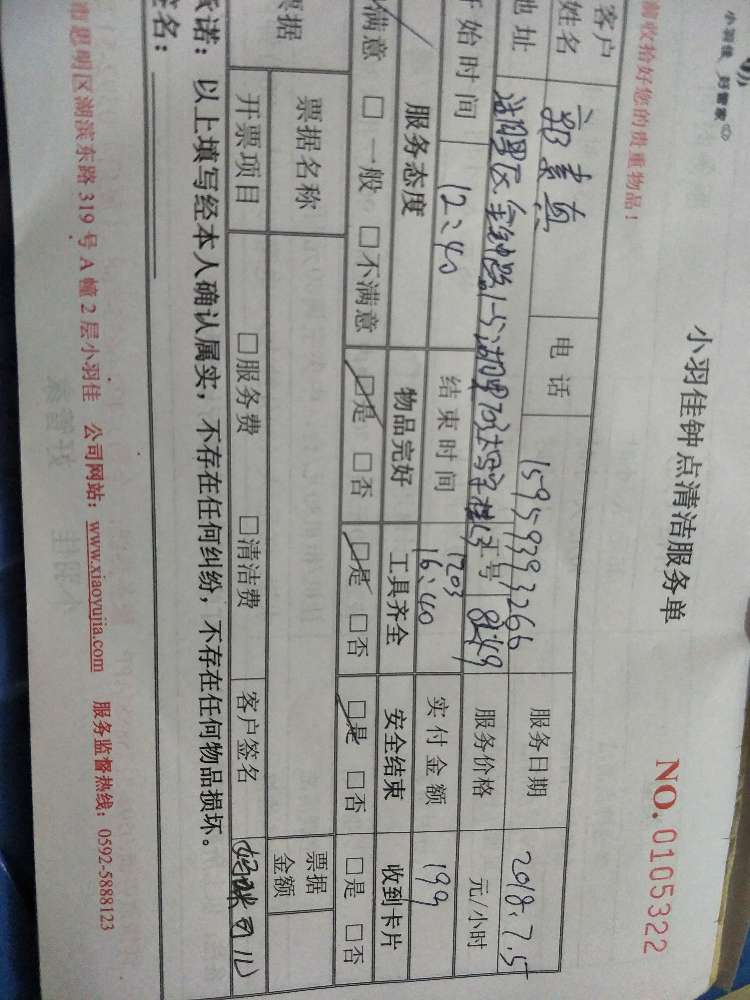 小羽佳 好管家
小羽佳钟点清洁服务单
NO.0105322
前收拾好您的贵重物品!
客户
姓名
电话 15959393266 服务日期 2018.7.5
地址 1203 工号 服务价格 元/小时
开始时间 12:40 结束时间 16:40 实付金额 199
服务态度 物品完好 工具齐全 安全结束 收到卡片
满意 □一般 □不满意 □是 □否 □是 □否 □是 □否 □是 □否
票据 票据名称 票据
金额
开票项目 □服务费 □清洁费 客户签名
承诺:以上填写经本人确认属实,不存在任何纠纷,不存在任何物品损坏。
签名:
市思明区湖滨东路319号A幢2层小羽佳 公司网站:www.xiaoyujia.com 服务监督热线:0592-5888123